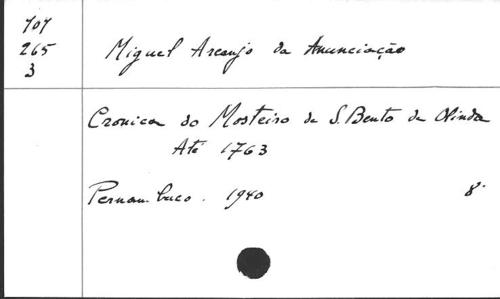 707
265
3
Miguel Arcanjo da Anunciação
Cronica do Mosteiro de S. Bento de Olinda
Até 1763
Pernambuco. 1940 8º